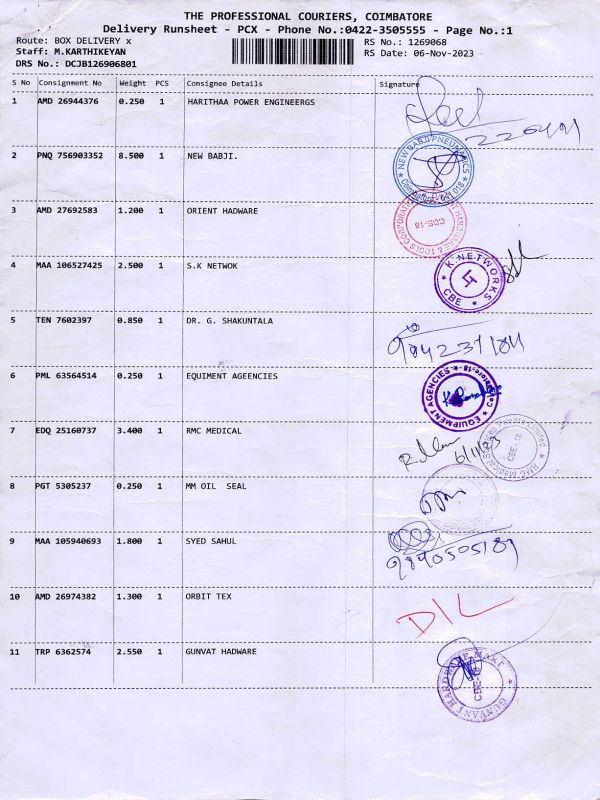 THE PROFESSIONAL COURIERS, COIMBATORE
Delivery Runsheet - PCX - Phone No.:0422-3505555 - Page No.:1
Route: BOX DELIVERY x
RS No.: 1269068
Staff: M.KARTHIKEYAN
RS Date: 06-Nov-2023
DRS No.: DCJB126906801
S No Consignment No Weight PCS Consignee Details Signature
1 AMD 26944376 0.250 1 HARITHAA POWER ENGINEERGS
2 PNQ 756903352 8.500 1 NEW BABJI.
NEW BABJI PNEUMATICS
Coimbatore 641 018
3 AMD 27692583 1.200 1 ORIENT HADWARE
CBE-18
4 MAA 106527425 2.500 1 S.K NETWOK
K NETWORKS
CBE
5 TEN 7602397 0.850 1 DR. G. SHAKUNTALA
6 PML 63564514 0.250 1 EQUIMENT AGEENCIES
EQUIPMENT AGENCIES
7 EDQ 25160737 3.400 1 RMC MEDICAL
6/11/23
CBE - 18
8 PGT 5305237 0.250 1 MM OIL SEAL
9 MAA 105940693 1.800 1 SYED SAHUL
9840505189
10 AMD 26974382 1.300 1 ORBIT TEX
D/L
11 TRP 6362574 2.550 1 GUNVAT HADWARE
GUNVANT HARDWARE MART
CBE-18